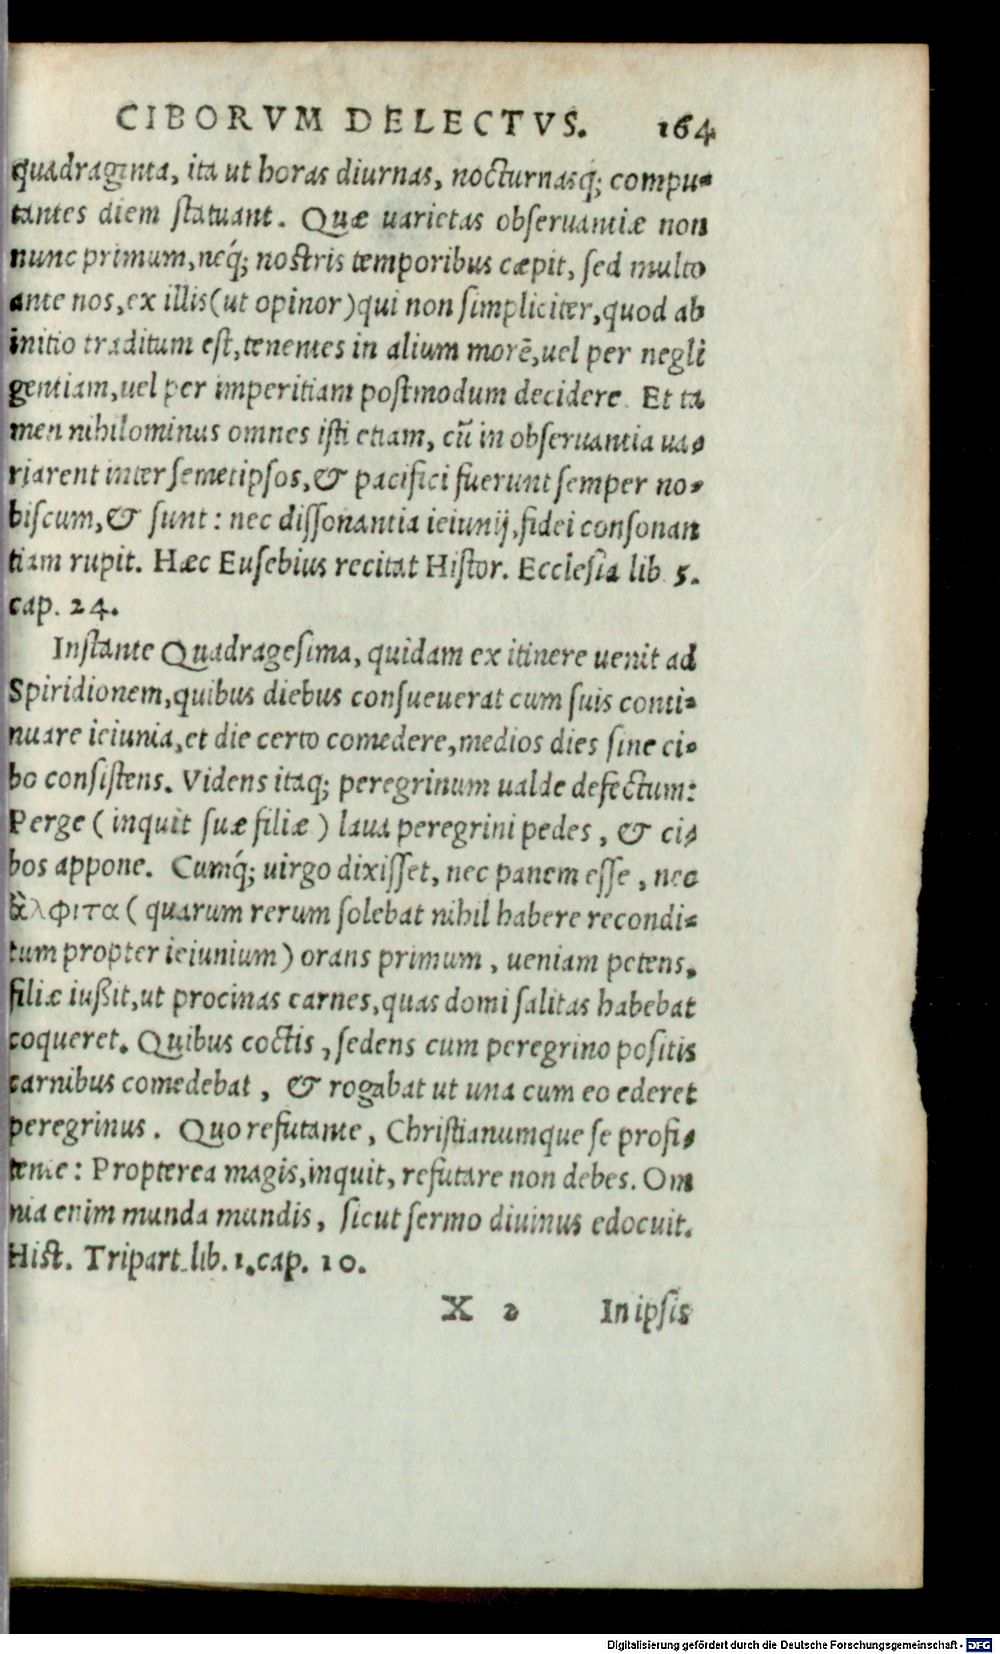 CIBORVM DELECTVS. 164
quadraginta, ita ut horas diurnas, nocturnasq́; compu-
tantes diem statuant. Quæ uarietas obseruantiæ non
nunc primum, neq́; nostris temporibus cæpit, sed multo
ante nos, ex illis (ut opinor) qui non simpliciter, quod ab
initio traditum est, tenentes in alium morē, uel per negli
gentiam, uel per imperitiam postmodum decidere. Et ta
men nihilominus omnes isti etiam, cū in obseruantia ua-
riarent inter semetipsos, & pacifici fuerunt semper no-
biscum, & sunt: nec dissonantia ieiunij, fidei consonan
tiam rupit. Hæc Eusebius recitat Histor. Ecclesia lib. 5.
cap. 24.
Instante Quadragesima, quidam ex itinere uenit ad
Spiridionem, quibus diebus consueuerat cum suis conti-
nuare ieiunia, et die certo comedere, medios dies sine ci-
bo consistens. Videns itaq; peregrinum ualde defectum:
Perge (inquit suæ filiæ) laua peregrini pedes, & ci-
bos appone. Cumq́; uirgo dixisset, nec panem esse, nec
ἄλφιτα (quarum rerum solebat nihil habere recondi-
tum propter ieiunium) orans primum, ueniam petens,
filiæ iußit, ut procinas carnes, quas domi salitas habebat
coqueret. Quibus coctis, sedens cum peregrino positis
carnibus comedebat, & rogabat ut una cum eo ederet
peregrinus. Quo refutante, Christianumque se profi-
tente: Propterea magis, inquit, refutare non debes. Om
nia enim munda mundis, sicut sermo diuinus edocuit.
Hist. Tripart. lib. 1. cap. 10.
X 2 In ipsis
Digitalisierung gefördert durch die Deutsche Forschungsgemeinschaft - DFG